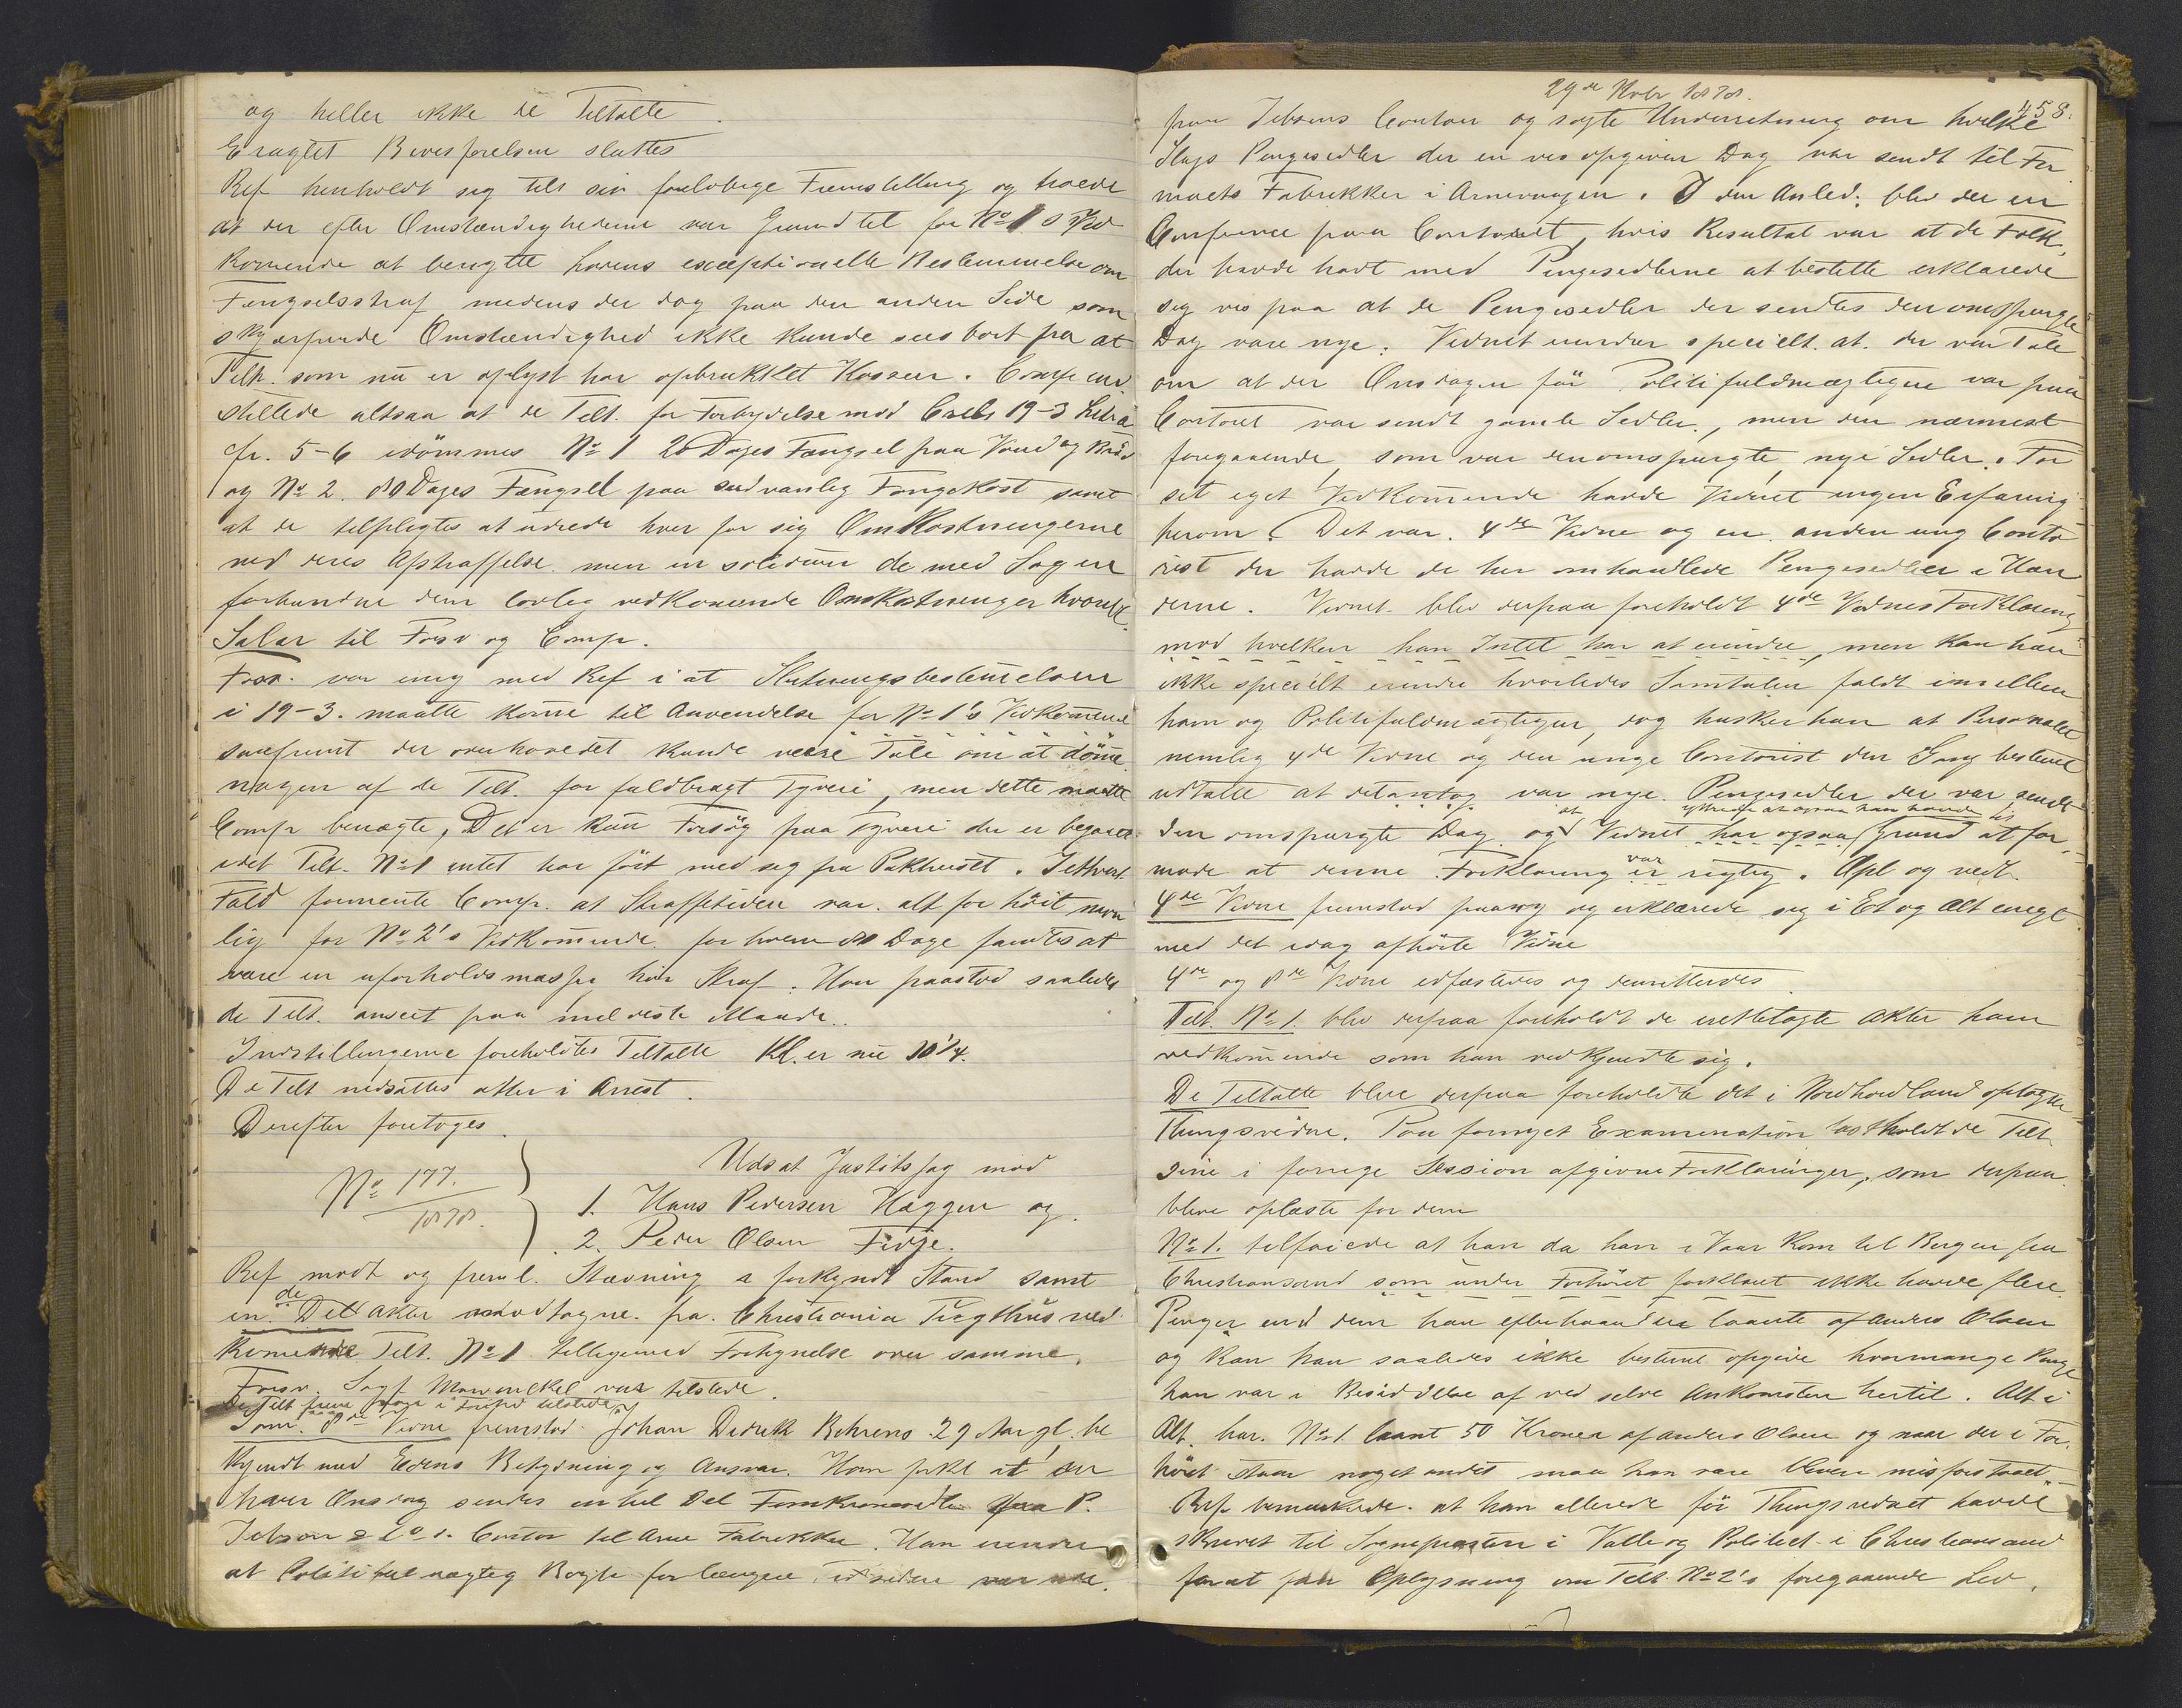 og heller ikke de Tiltalte.
Eragtet Bevisførelsen sluttes
Ref henholdt sig til sin foreløbige Fremstilling og troede
at der efter Omstændighederne var Grund til for No 1's Ved
kommende at benytte Lovens exceptionelle Bestemmelse om
Fængselsstraf medens der dog paa den anden Side som
skjærpende Omstændighed ikke kunde sees bort fra at
Tilt. som nu er oplyst har opbrukket Kassen. Comp ind
stillede altsaa at de Tilt. for Forbrydelse mod Crls 19-3 Litra
cfr. 5-6 idömmes No 1 20 Dages Fængsel paa Vand og Bröd
og No 2. 80 Dages Fængsel paa sedvanlig Fangekost samt
at de tilpligtes at udrede hver for sig Omkostningerne
ved deres Afstraffelse men in solidum de med Sagen
forbundne dem lovlig vedkommende Omkostninger hvorund.
Salær til Forsv og Comp.
Forsv. var enig med Ref i at Slutningsbestemmelsen
i 19-3. maatte komme til Anvendelse for No 1's Vedkommende
saafremt der overhovedet kunde være Tale om at dömme
nogen af de Tilt. for fuldbragt Tyveri, men dette maatte
Comp benægte, Det er kun Forsög paa Tyveri der er begaaet
idet Tilt. No 1 intet har fört med sig fra Pakhuset. Iethvert
Fald formente Comp. at Straffetiden var alt for höit navn
lig for No 2's Vedkommende for hvem 80 Dage fandtes at
være en uforholdsmæssig höi Straf. Han paastod saaledes
de Tilt. anseet paa mildeste Maade.
Indstillingerne foreholdtes Tiltalte Kl. er nu 10 1/4.
De Tilt nedsattes atter i Arrest.
Derefter foretoges
No 177. / 1878. } Udsat Justitssag mod
1. Hans Pedersen Haggen og
2. Peder Olsen Fidje.
Ref mødt og freml. Stævning i forkyndt Stand samt
en Del Akter modtagne fra Christiania Tugthus ved
kommende Tilt. No 1 tilligemed Fortegnelse over samme.
Forsv. Sagf. Mowinckel var tilstede.
De Tilt frem i Frihed tilstede.
Som 8de Vidne fremstod Johan Didrik Behrens 29 Aar gl. be
kjendt med Edens Betydning og Ansvar. Han forkl at der
hver Onsdag sendes en hel Del Femkronesedler fra P.
Jebsen & Co s. Contor til Arne Fabrikker. Han erindrer
at Politifuldmægtig for længere Tid siden var inde
29de Novbr 1878.
458.
paa Jebsens Contoir og søgte Underretning om hvilke
Slags Pengesedler der en vis opgiven Dag var sendt til Fir
maets Fabrikker i Arnevaagen. I den Anled. blev der en
Conference paa Contoiret, hvis Resultat var at de Folk,
der havde havt med Pengesedlerne at bestille erklærede
sig vis paa at de Pengesedler der sendtes den omspurgte
Dag vare nye. Vidnet erindrer specielt at der var Tale
om at der Onsdagen för Politifuldmægtigen var paa
Contoret var sendt gamle Sedler, men den nærmest
foregaaende, som var den omspurgte, nye Sedler. For
sit eget Vedkommende havde Vidnet ingen Erfaring
herom. Det var 4de Vidne og en anden ung Conto
rist der havde de her omhandlede Pengesedler i Hæn
derne. Vidnet blev derpaa foreholdt 4de Vidnes Forklaring
mod hvilken han Intet har at erindre, men kan han
ikke specielt erindre hvorledes Samtalen faldt imellem
ham og Politifuldmægtigen, dog husker han at Personalet
nemlig 4de Vidne og den unge Contorist den Gang bestemt
udtalte at det var nye Pengesedler der var sendt
den omspurgte Dag og at Vidnet yttrede at ogsaa han havde har ogsaa Grund til at for
mode at denne Forklaring var er rigtig. Opl og vedt.
4de Vidne fremstod paany og erklærede sig i Et og Alt enigt
med det idag afhörte Vidne
4de og 8de Vidne edfæstedes og demitteredes.
Tilt. No 1 blev derpaa foreholdt de irettelagte Akter ham
vedkommende som han vedkjendte sig.
De Tiltalte bleve derpaa foreholdt det i Nordhordland optagne
Thingsvidne. Paa fornyet Examination fastholdt de Tilt
sine i forrige Session afgivne Forklaringer, som derpaa
bleve oplæste for dem
No 1. tilföiede at han da han i Vaar kom til Bergen fra
Christiansand som under Forhöret forklaret ikke havde flere
Penger end dem han efterhaanden laante af Anders Olsen
og kan han saaledes ikke bestemt opgive hvormange Penge
han var i Besiddelse af ved selve Ankomsten hertil. Alt i
Alt har No 1 laant 50 Kroner af Anders Olsen og naar der i For
höret staar noget andet maa han være bleven misforstaaet.
Ref bemærkede at han allerede för Thingsvidnet havde
skrevet til Sognepresten i Valle og Politiet i Christiansand
for at faa Oplysning om Tilt. No 2's foregaaende Lev.